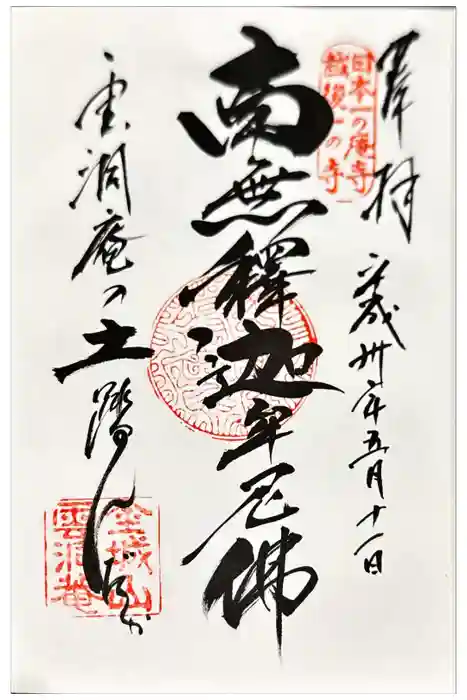 奉拝
日本一の庵寺
越後一の寺
平成卅年五月十一日
南無釋迦牟尼佛
雲洞庵の土踏んだか
金城山
雲洞庵